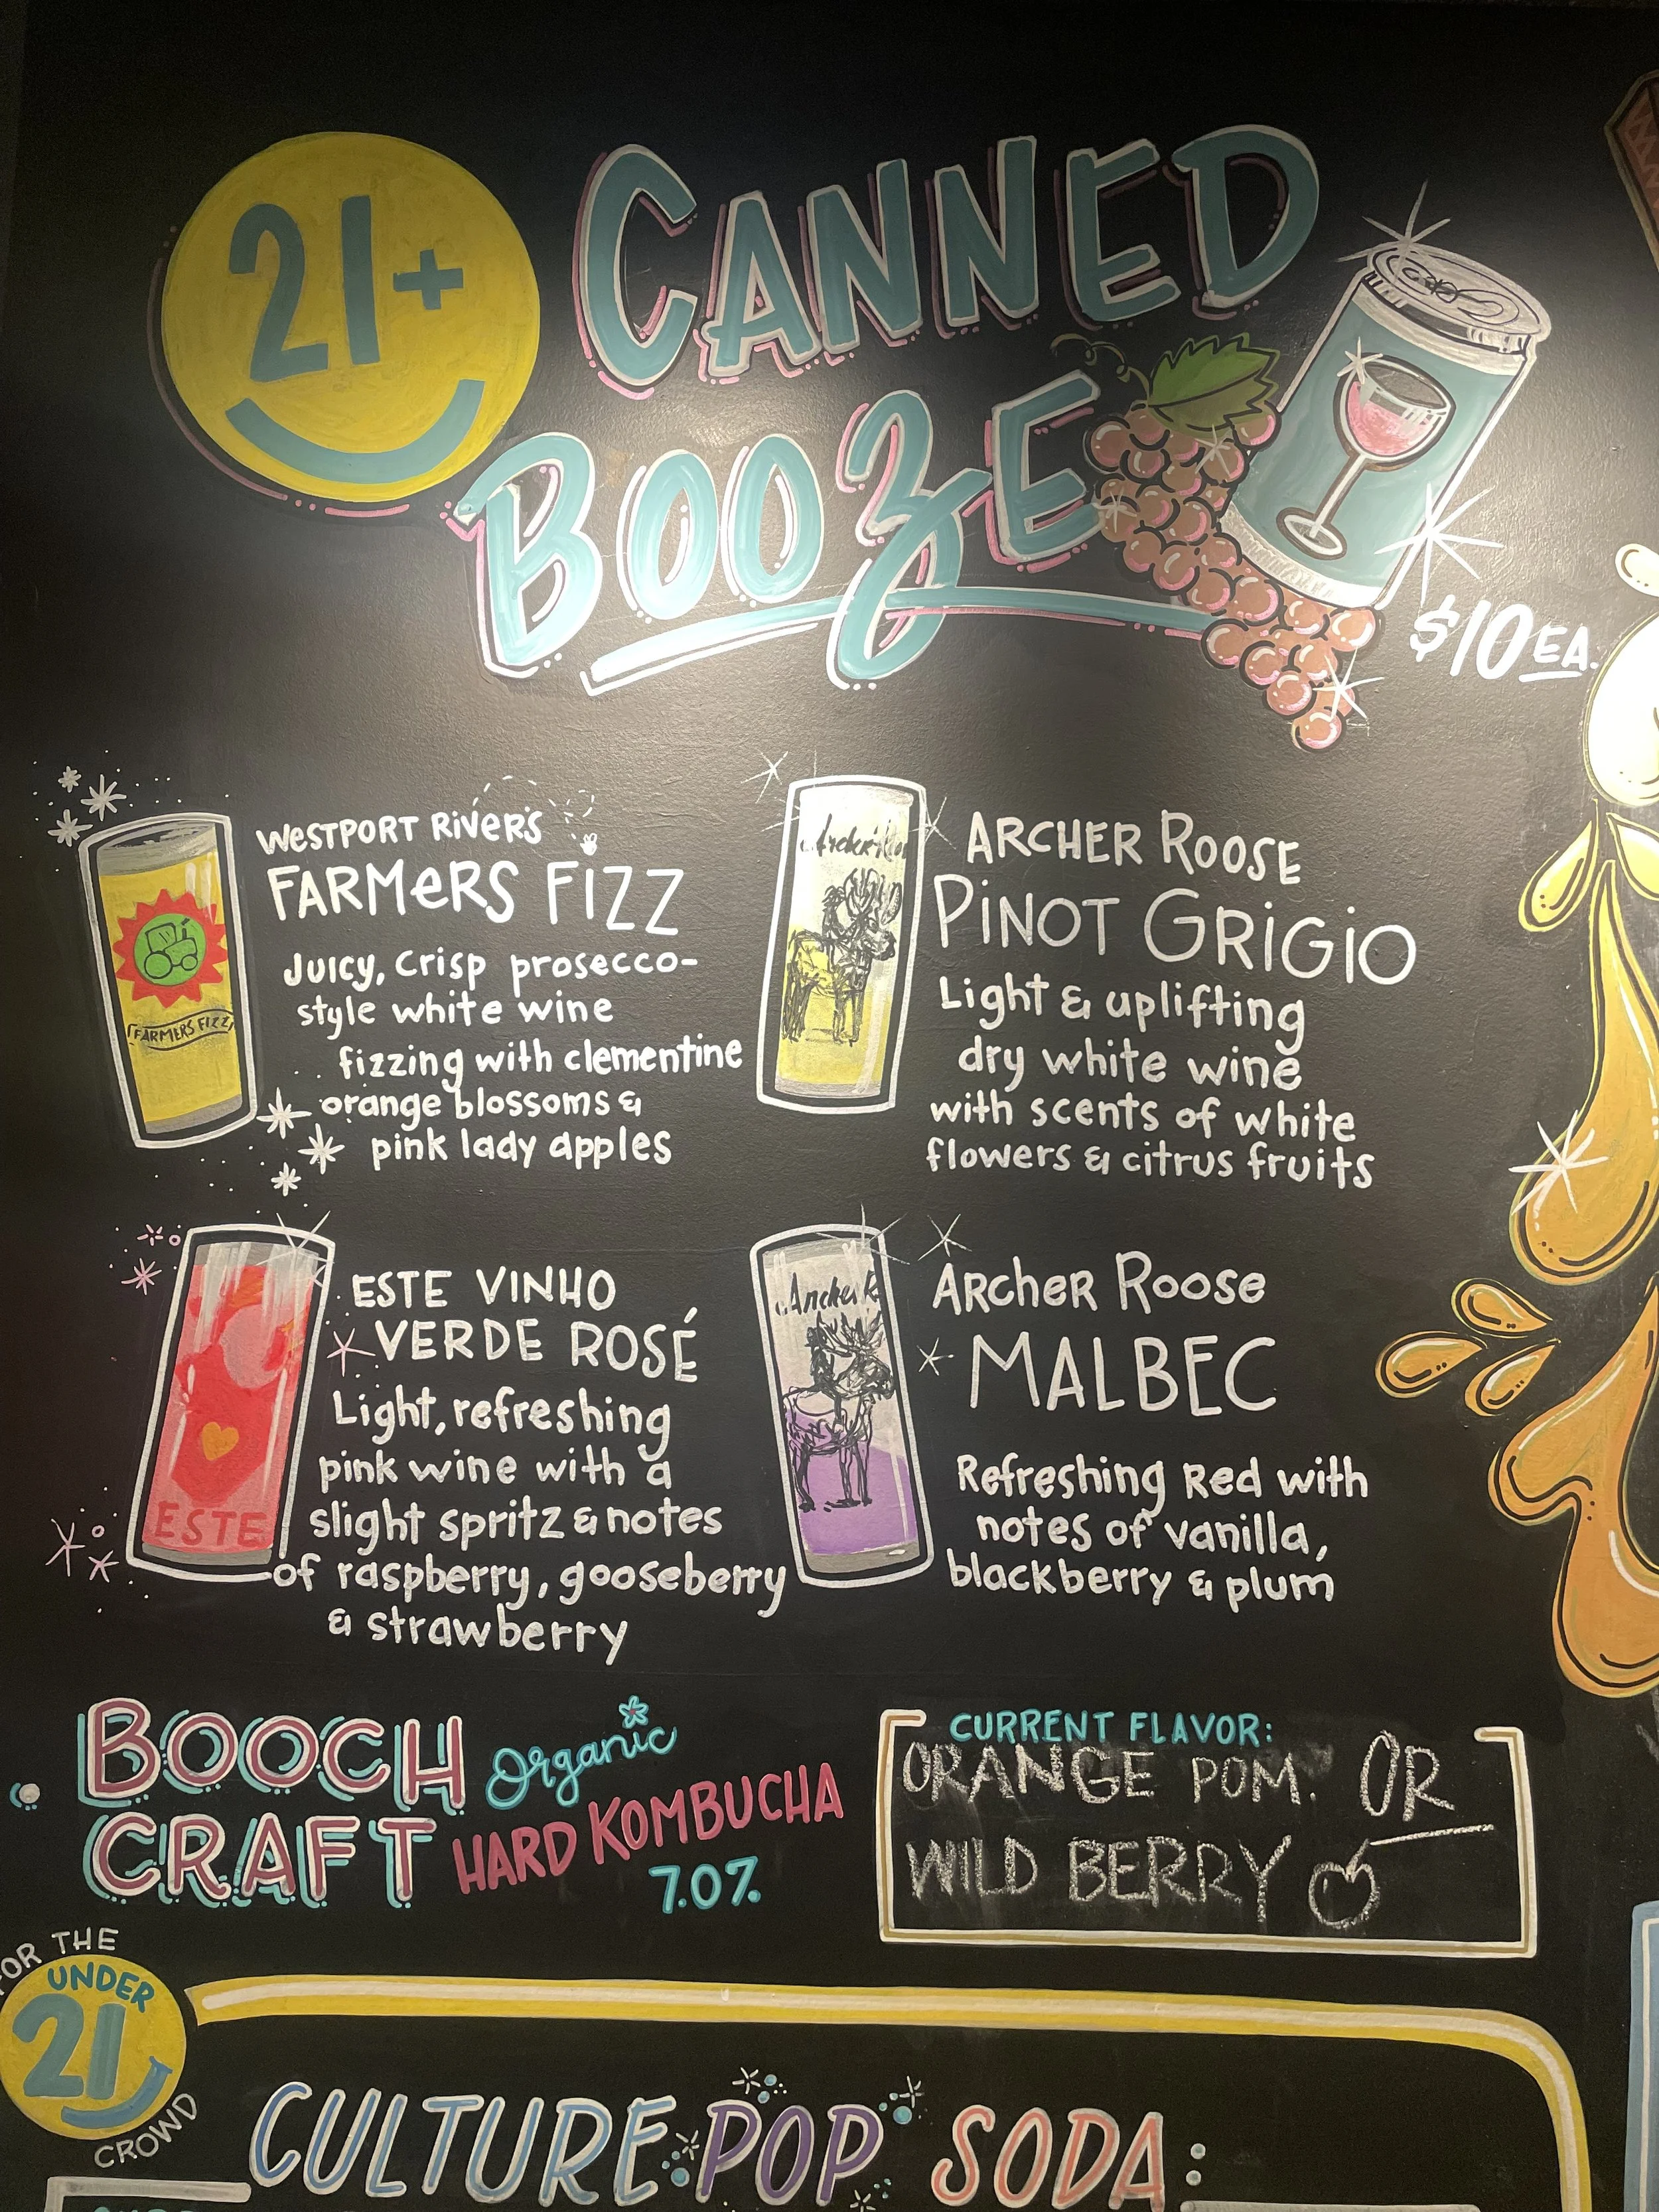 21+
CANNED
BOOZE
$10 EA.
WESTPORT RIVERS
FARMERS FIZZ
Juicy, crisp prosecco-
style white wine
fizzing with clementine
orange blossoms &
pink lady apples
FARMERS FIZZ
ARCHER ROOSE
PINOT GRIGIO
Light & uplifting
dry white wine
with scents of white
flowers & citrus fruits
ESTE VINHO
VERDE ROSÉ
Light, refreshing
pink wine with a
slight spritz & notes
of raspberry, gooseberry
& strawberry
ESTE
Archer Roose
MALBEC
Refreshing Red with
notes of vanilla,
blackberry & plum
BOOCH
CRAFT
Organic
HARD KOMBUCHA
7.0%
CURRENT FLAVOR:
ORANGE POM. OR
WILD BERRY
FOR THE
UNDER
21
CROWD
CULTURE POP SODA: